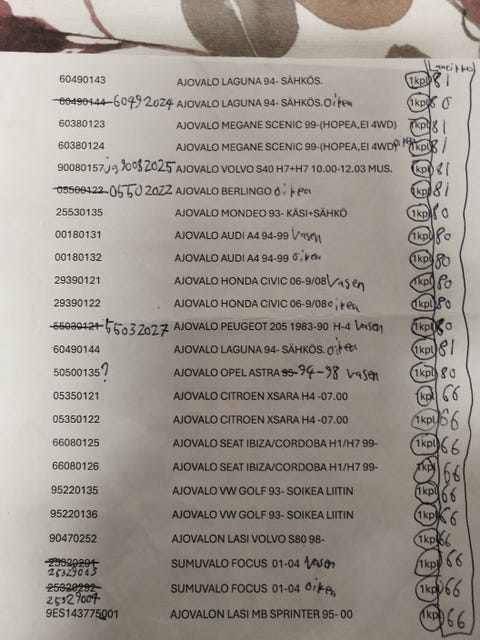 Laatikko
60490143 AJOVALO LAGUNA 94- SÄHKÖS. 1kpl 81
60490144 60492024 AJOVALO LAGUNA 94- SÄHKÖS. Oikea 1kpl 80
60380123 AJOVALO MEGANE SCENIC 99-(HOPEA,EI 4WD) 1kpl 81
60380124 AJOVALO MEGANE SCENIC 99-(HOPEA,EI 4WD) oikea 1kpl 81
90080157 ja 90082025 AJOVALO VOLVO S40 H7+H7 10.00-12.03 MUS. 1kpl 81
05500122 05502022 AJOVALO BERLINGO oikea 1kpl 81
25530135 AJOVALO MONDEO 93- KÄSI+SÄHKÖ 1kpl 80
00180131 AJOVALO AUDI A4 94-99 Vasen 1kpl 80
00180132 AJOVALO AUDI A4 94-99 oikea 1kpl 80
29390121 AJOVALO HONDA CIVIC 06-9/08 Vasen 1kpl 80
29390122 AJOVALO HONDA CIVIC 06-9/08 oikea 1kpl 80
55030121 55032027 AJOVALO PEUGEOT 205 1983-90 H-4 Vasen 1kpl 80
60490144 AJOVALO LAGUNA 94- SÄHKÖS. oikea 1kpl 81
50500135? AJOVALO OPEL ASTRA 95- 94-98 vasen 1kpl 80
05350121 AJOVALO CITROEN XSARA H4 -07.00 1kpl 66
05350122 AJOVALO CITROEN XSARA H4 -07.00 1kpl 66
66080125 AJOVALO SEAT IBIZA/CORDOBA H1/H7 99- 1kpl 66
66080126 AJOVALO SEAT IBIZA/CORDOBA H1/H7 99- 1kpl 66
95220135 AJOVALO VW GOLF 93- SOIKEA LIITIN 1kpl 66
95220136 AJOVALO VW GOLF 93- SOIKEA LIITIN 1kpl 66
90470252 AJOVALON LASI VOLVO S80 98- 1kpl 66
25320291 SUMUVALO FOCUS 01-04 Vasen 1kpl 66
25329003
25320292 SUMUVALO FOCUS 01-04 oikea 1kpl 66
25329004
9ES143775001 AJOVALON LASI MB SPRINTER 95- 00 1kpl 66